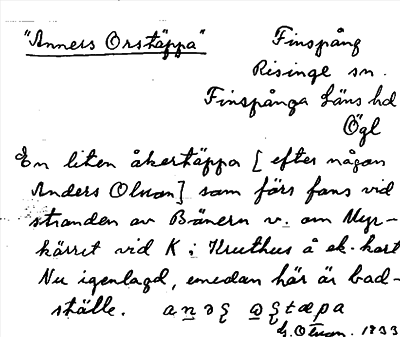 "Anners Orstäppa"
Finspång
Risinge sn.
Finspånga Läns hd
Ögl
En liten åkertäppa [efter någon
Anders Olsson] som förs fans vid
stranden av Bönern v. om Myr-
kärret vid K i Kruthus å ek. kart
Nu igenlagd, emedan här är bad-
ställe.
1933